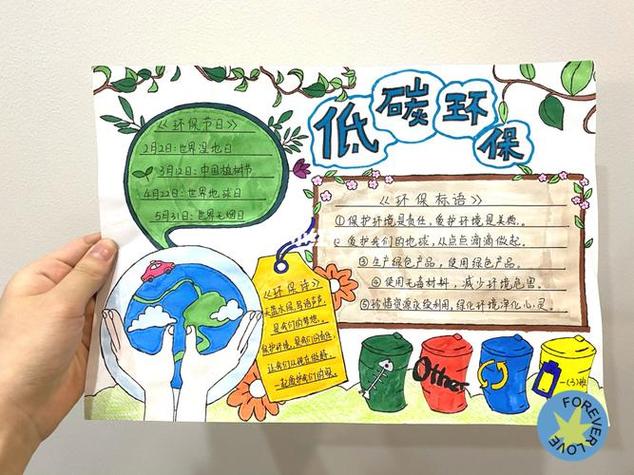 低碳环保
《环保节日》
2月2日:世界湿地日
3月12日:中国植树节
4月22日:世界地球日
5月31日:世界无烟日
《环保标语》
①保护环境是责任,爱护环境是美德。
② 爱护我们的地球,从点点滴滴做起。
③生产绿色产品,使用绿色产品。
④使用无毒材料,减少环境危害。
⑤珍惜资源永续利用,绿化环境净化心灵。
《环保诗》
是我们的梦想。
保护环境,是我们的责任,
让我们从现在做起,
一起爱护我们的家。
Other
一(3)班
FOREVER LOVE